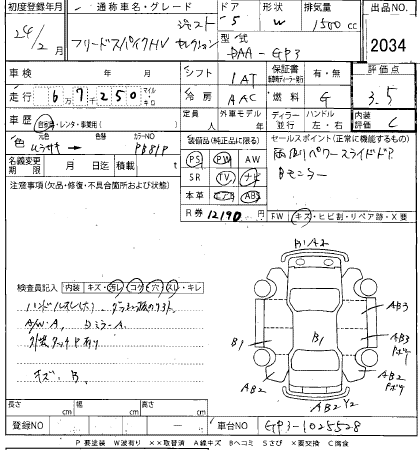 初度登録年月 通称車名・グレード ドア 形状 排気量 出品NO
24/2月 フリードスパイクHV セレクション 5 W 1500cc 2034
型式 DAA-GP3
車検 年 月 シフト 1AT 保証書 有・無 評価点
走行 67250 マイル キロ 冷房 AAC 燃料 G 3.5
車歴 自家用・レンタ・事業用 定員 人 外車モデル 年 ディーラー 並行 ハンドル 左・右 内装評価 C
色 ムラサキ 色替 カラーNO PB81P
装備品(純正品に限る) セールスポイント(正常に機能するもの)
名義変更期限 月 日迄 積載 t
PS PW AW 両側パワースライドドア
注意事項(欠品・修復・不具合箇所および状態)
SR TV ナビ Bモニター
本革 エアB ABS
R券 12190円
FW キズ・ヒビ割・リペア跡・X要
検査員記入 内装 キズ・汚レ・コゲ・穴・スレ・キレ
A/W・A、DミラーA
キズ、B
B1 A2
AB3
B1
B1
AB3
AB2
AB2
AB2 Y2
長さ cm 幅 cm 高さ cm
登録NO 車台NO GP3-1025528
P要塗装 W波有り ××取替済 A線キズ Bヘコミ Sさび ×要交換 C腐食